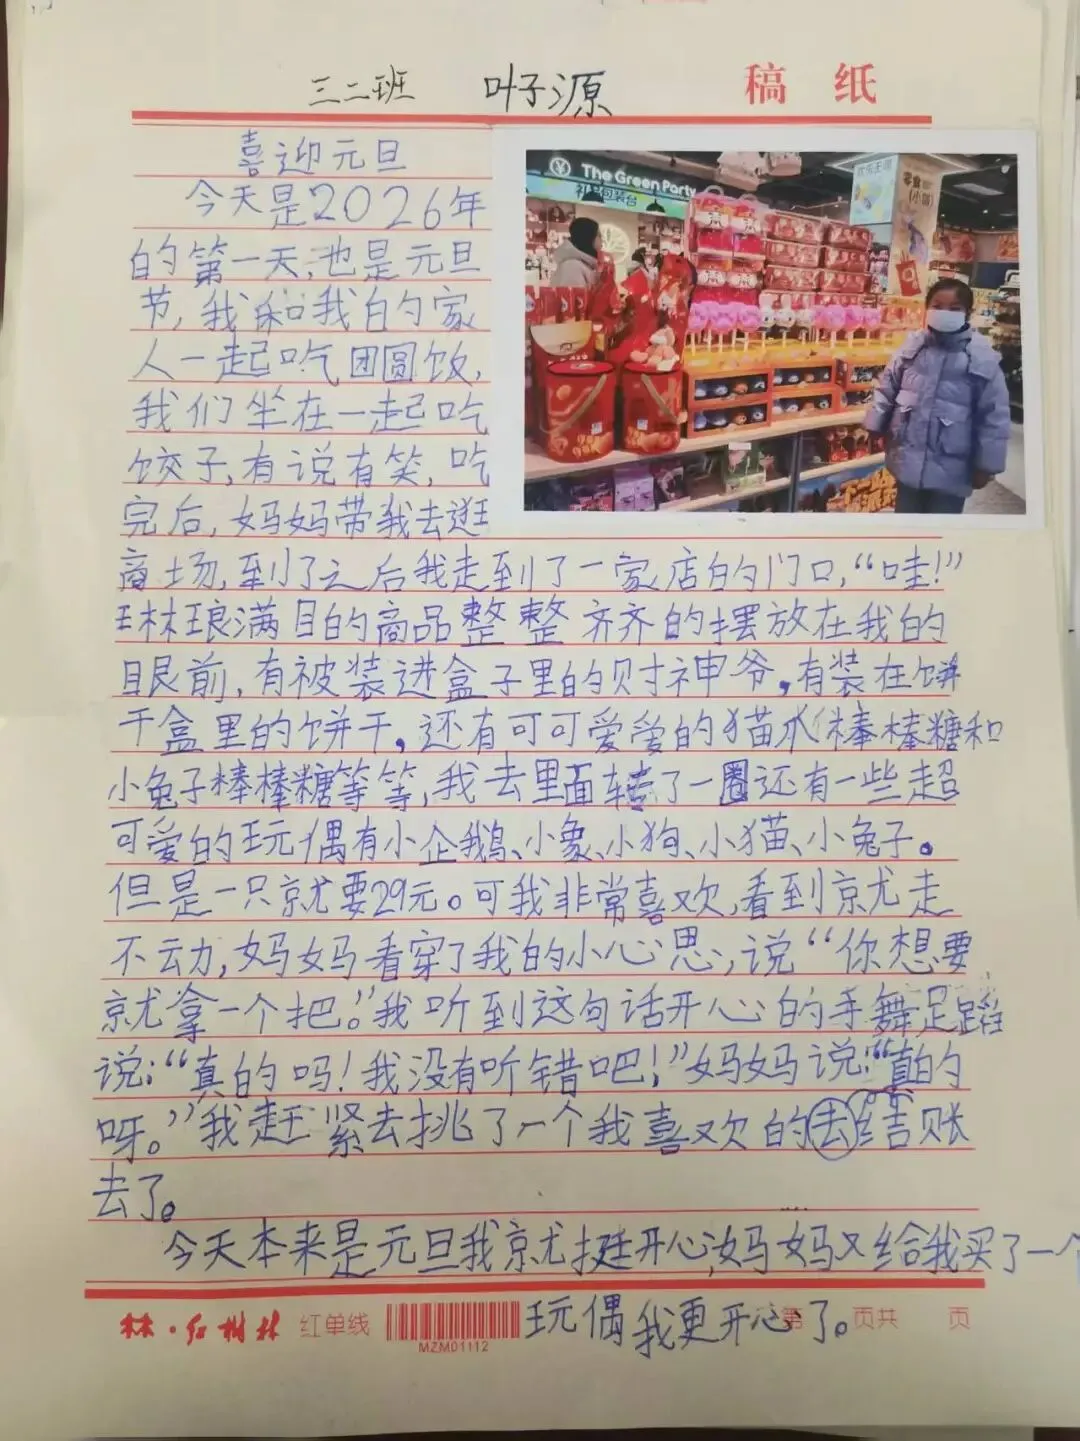 三二班 叶子源 稿纸
喜迎元旦
今天是2026年
的第一天,也是元旦
节,我和我的家
人一起吃团圆饭,
我们坐在一起吃
饺子,有说有笑,吃
完后,妈妈带我去逛
商场,到了之后我走到了一家店的门口,“哇!”
琳琅满目的商品整整齐齐的摆放在我的
眼前,有被装进盒子里的财神爷,有装在饼
干盒里的饼干,还有可可爱爱的猫爪棒棒糖和
小兔子棒棒糖等等,我去里面转了一圈还有一些超
可爱的玩偶有小企鹅、小象、小狗、小猫、小兔子。
但是一只就要29元。可我非常喜欢,看到就走
不动,妈妈看穿了我的小心思,说“你想要
就拿一个把。”我听到这句话开心的手舞足蹈
说:“真的吗!我没有听错吧!”妈妈说:“真的
呀。”我赶紧去挑了一个我喜欢的去结账
去了。
今天本来是元旦我就挺开心,妈妈又给我买了一个
玩偶我更开心了。
The Green Party
林·红树林 红单线 MZM01112 第 页共 页